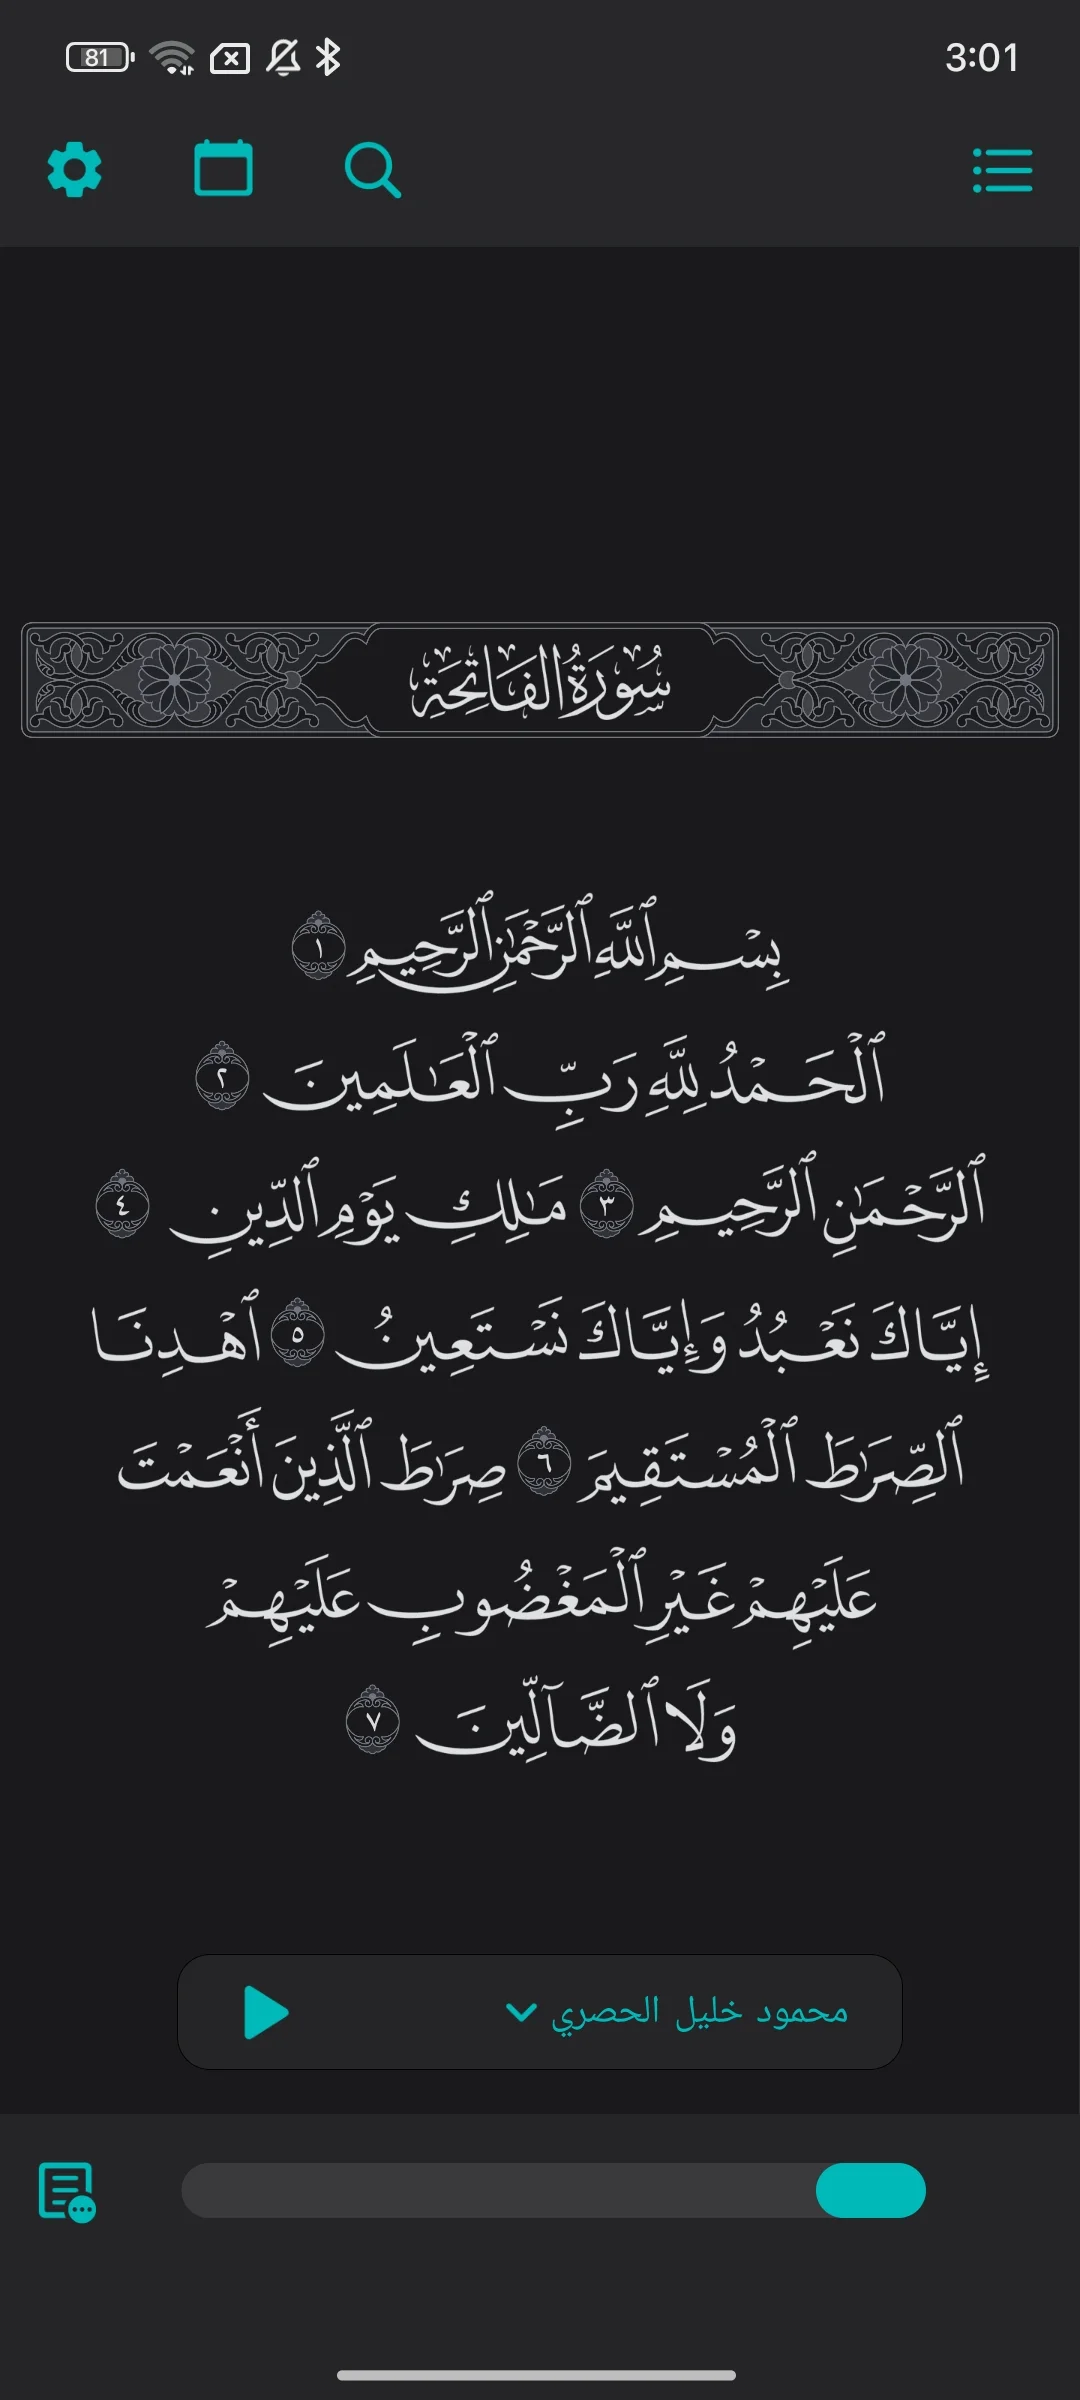 81
3:01
سُورَةُ الفَاتِحَةِ
بِسْمِ ٱللَّهِ ٱلرَّحْمَٰنِ ٱلرَّحِيمِ ١
ٱلْحَمْدُ لِلَّهِ رَبِّ ٱلْعَٰلَمِينَ ٢
ٱلرَّحْمَٰنِ ٱلرَّحِيمِ ٣ مَٰلِكِ يَوْمِ ٱلدِّينِ ٤
إِيَّاكَ نَعْبُدُ وَإِيَّاكَ نَسْتَعِينُ ٥ ٱهْدِنَا
ٱلصِّرَٰطَ ٱلْمُسْتَقِيمَ ٦ صِرَٰطَ ٱلَّذِينَ أَنْعَمْتَ
عَلَيْهِمْ غَيْرِ ٱلْمَغْضُوبِ عَلَيْهِمْ
وَلَا ٱلضَّآلِّينَ ٧
محمود خليل الحصري